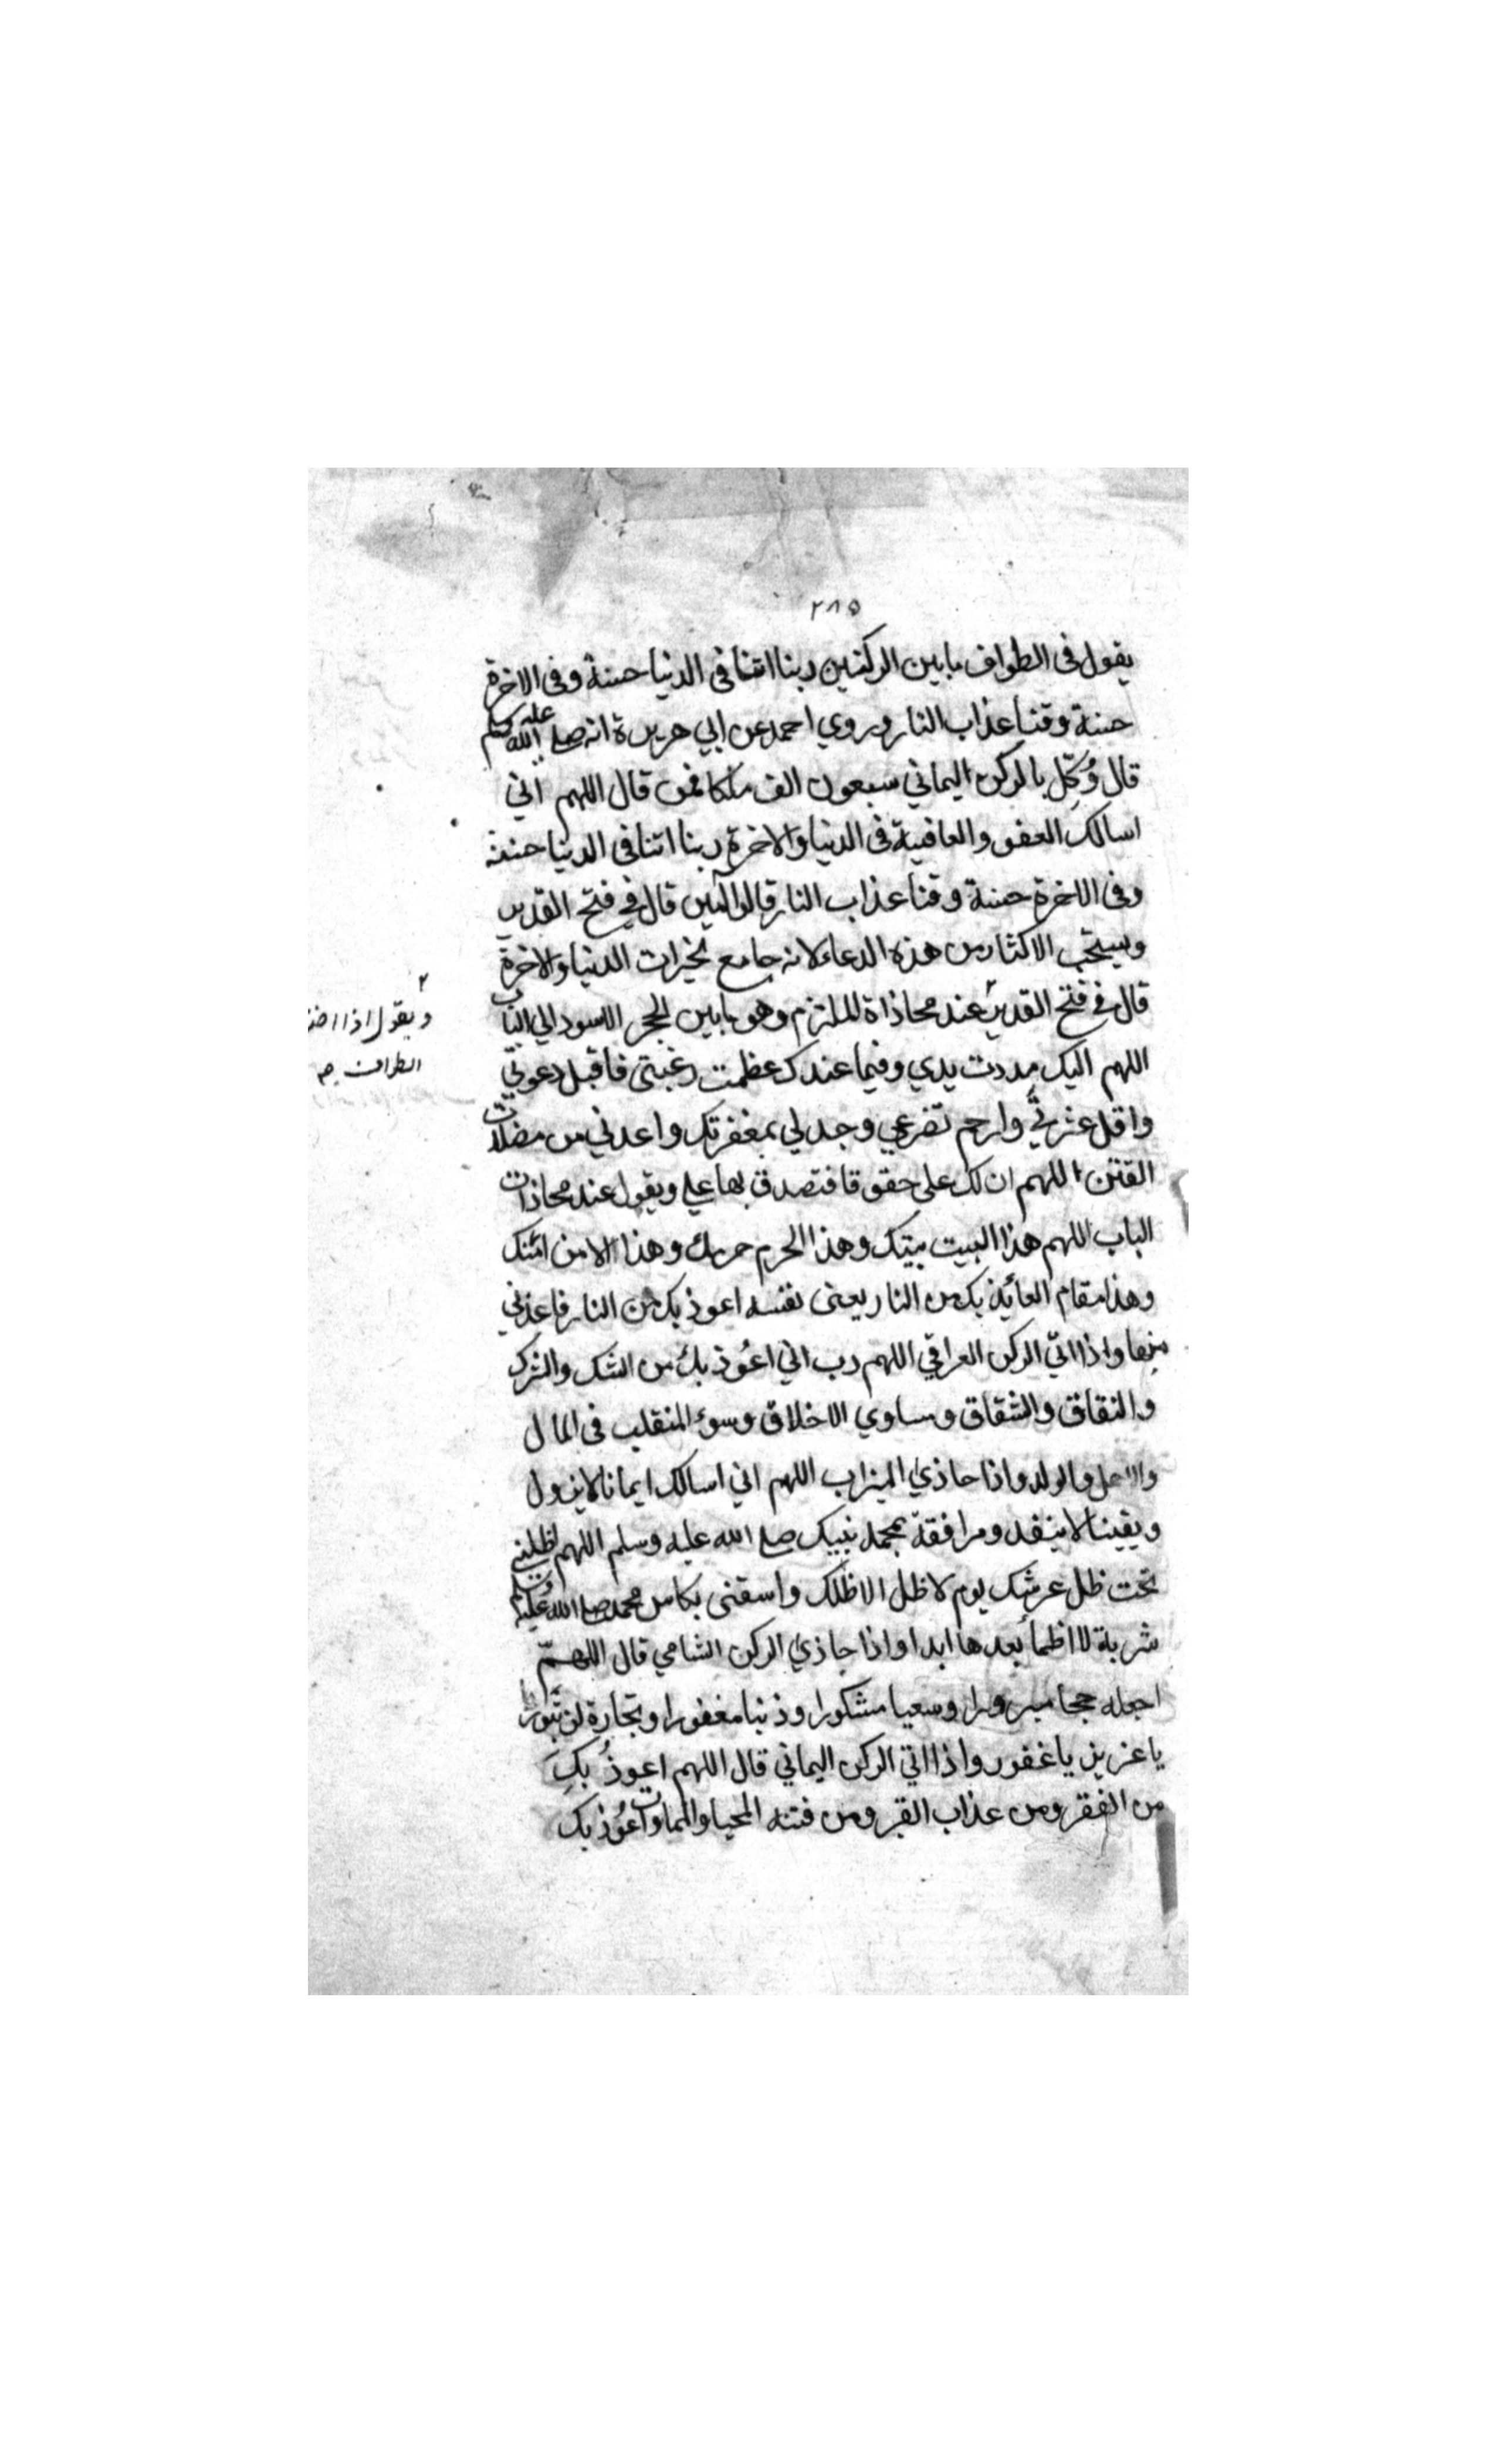 ٢٨٥
يقول في الطواف ما بين الركنين ربنا اتنا في الدنيا حسنة وفي الاخرة
حسنة وقنا عذاب النار وروي احمد عن ابي هريرة انه صلي الله عليه وسلم
قال وُكِّل بالركن اليماني سبعون الف ملكا فمن قال اللهم اني
اسالك العفو والعافية في الدنيا والاخرة ربنا اتنا في الدنيا حسنة
وفي الاخرة حسنة وقنا عذاب النار قالوا آمين قال في فتح القدير
ويستحب الاكثار من هذه الدعاء لانه جامع لخيرات الدنيا والاخرة
قال في فتح القدير عند محاذاة الملتزم وهو ما بين الحجر الاسود الي الباب
اللهم اليك مددت يدي وفيما عندك عظمت رغبتي فاقبل دعوتي
واقل عثرتي وارحم تضرعي وجد لي بمغفرتك واعذني من مضلات
الفتن اللهم ان لك علي حقوقا فتصدق بها علي ويقول عند محاذات
الباب اللهم هذا البيت بيتك وهذا الحرم حرمك وهذا الامن امنك
وهذا مقام العائذ بك من النار يعني نفسه اعوذ بك من النار فاعذني
منها واذا اتي الركن العراقي اللهم رب اني اعُوذ بك من الشك والشرك
والنفاق والشقاق ومساوي الاخلاق وسوء المنقلب في المال
والاهل والولد واذا حاذي الميزاب اللهم اني اسالك ايمانا لا يزول
ويقينا لا ينفد ومرافقة بمحمد نبيك صلي الله عليه وسلم اللهم اظلني
تحت ظل عرشك يوم لا ظل الا ظلك واسقني بكاس محمد صلي الله عليه وسلم
شربة لا اظمأ بعدها ابدا واذا حاذي الركن الشامي قال اللهمّ
اجعله حجا مبرورا وسعيا مشكورا وذنبا مغفورا وتجارة لن تبور
يا عزيز يا غفور واذا اتي الركن اليماني قال اللهم اعوذُ بكَ
من الفقر ومن عذاب القبر ومن فتنه المحيا والممات واعُوذ بك
ويقول اذا
الطواف صح